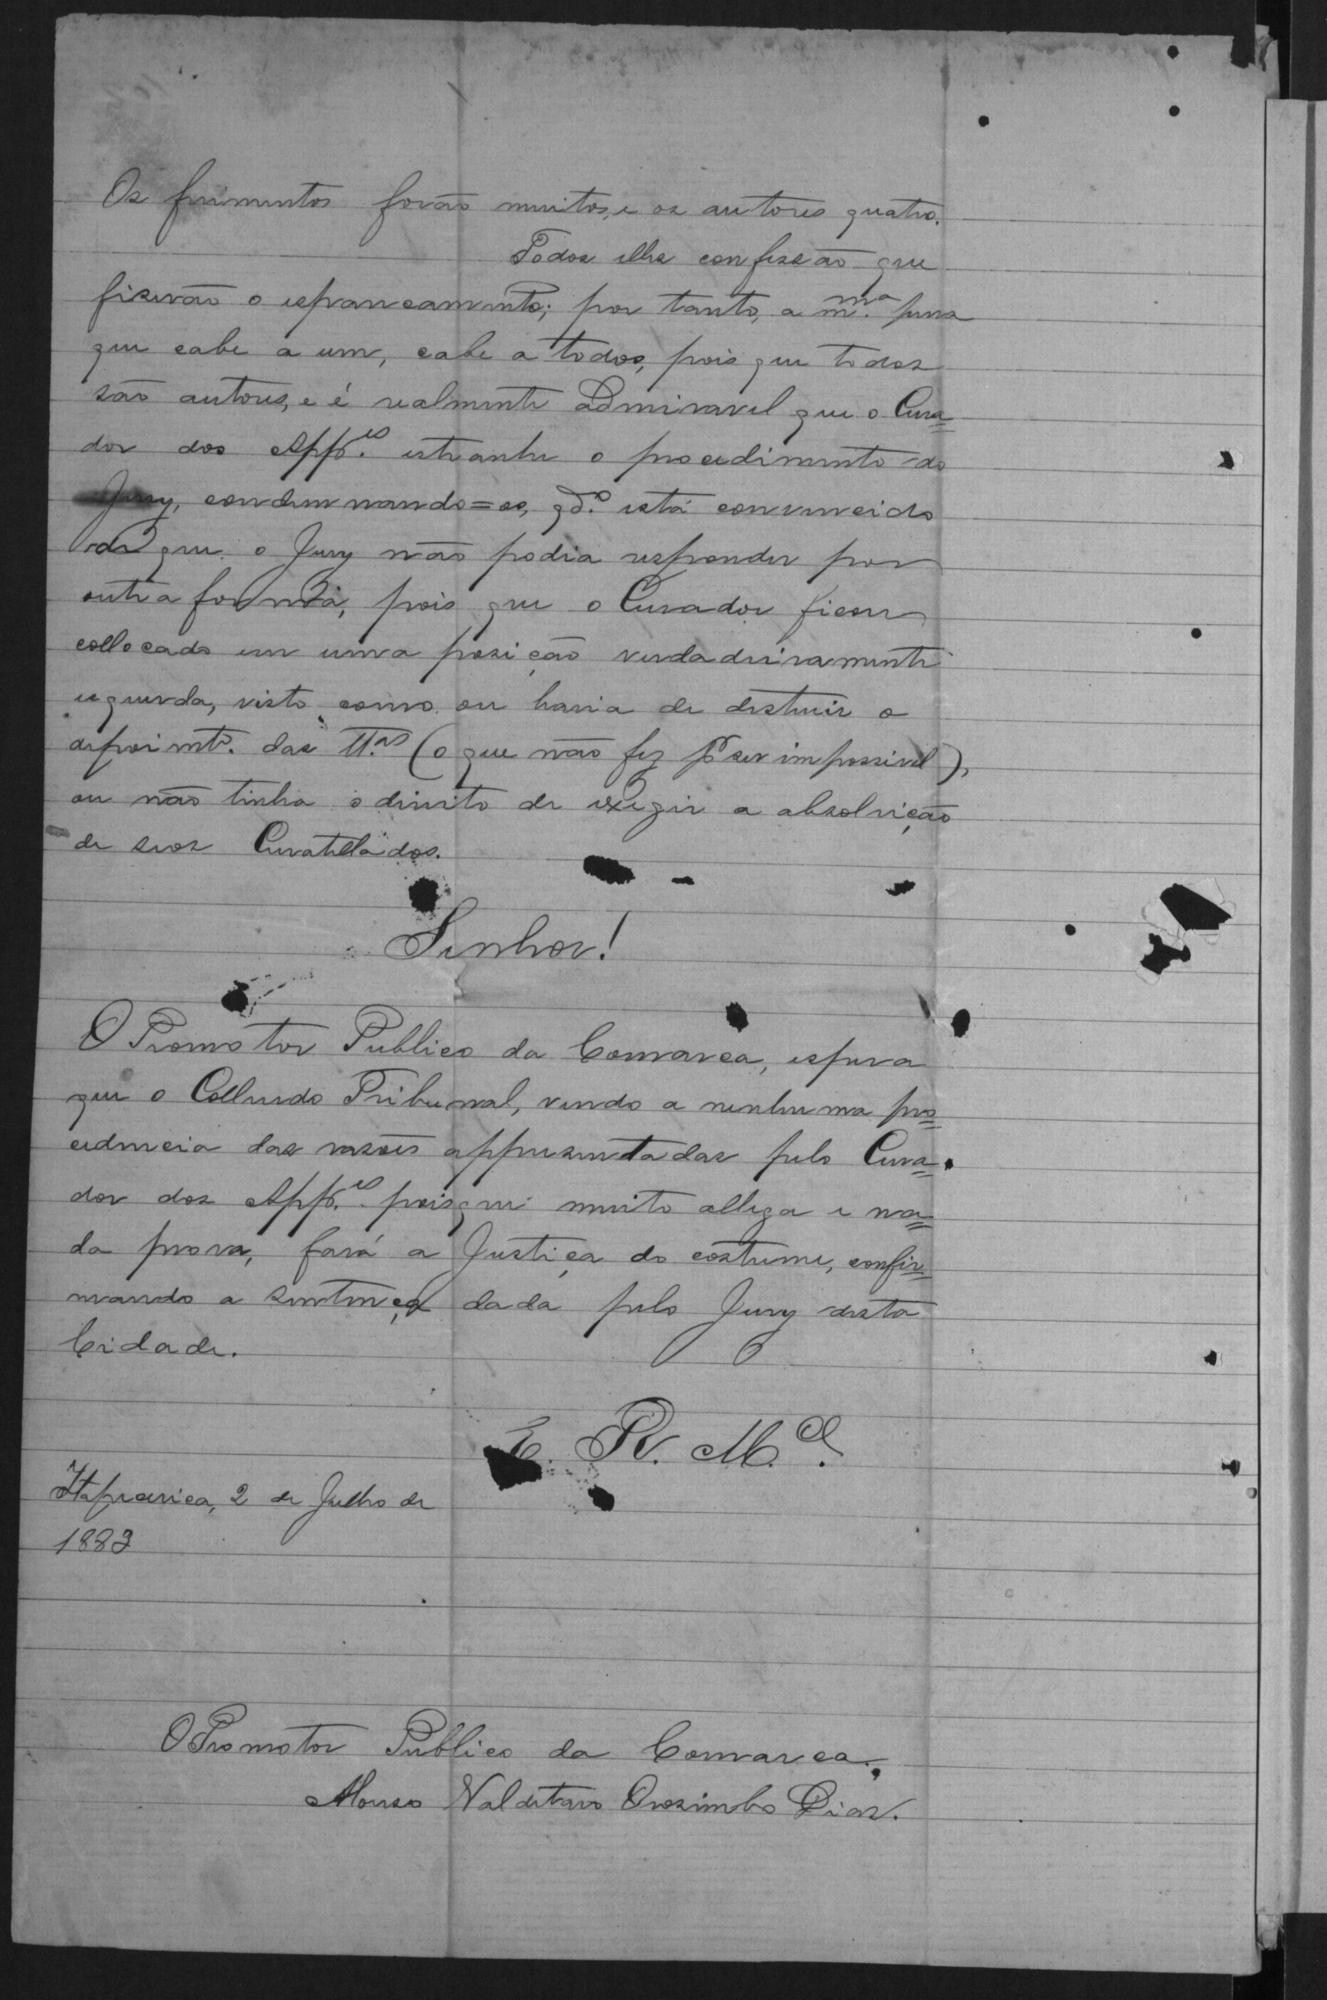 Os ferimentos forão muitos, e os autores quatro.
Todos elles confessão que
fizerão o espancamento; por tanto, a m.ma pena
que cabe a um, cabe a todos, pois que todos
são autores, e é realmente admiravel que o Cura=
dor dos App.es estranhe o procedimento do
Jury, condemnando=os, qd.o está convencido
de que o Jury não podia responder por
outra forma, pois que o Curador ficou
collocado em uma posição verdadeiramente
esquerda, visto como ou havia de destruir o
depoimt.o das TT.as (o que não fez por ser impossivel),
ou não tinha o direito de exegir a absolvição
de seos Curatellados.
Senhor!
O Promotor Publico da Comarca, espera
que o Collendo Tribunal, vendo a nenhuma pro=
cedencia das rasões appresentadas pelo Cura=
dor dos App.es pois que muito allega e na=
da prova, fará a Justiça do costume, confir=
mando a sentença dada pelo Jury desta
Cidade.
E. R. M.cê
Itaparica, 2 de Julho de
1883
O Promotor Publico da Comarca.
Orosimbo Dias.